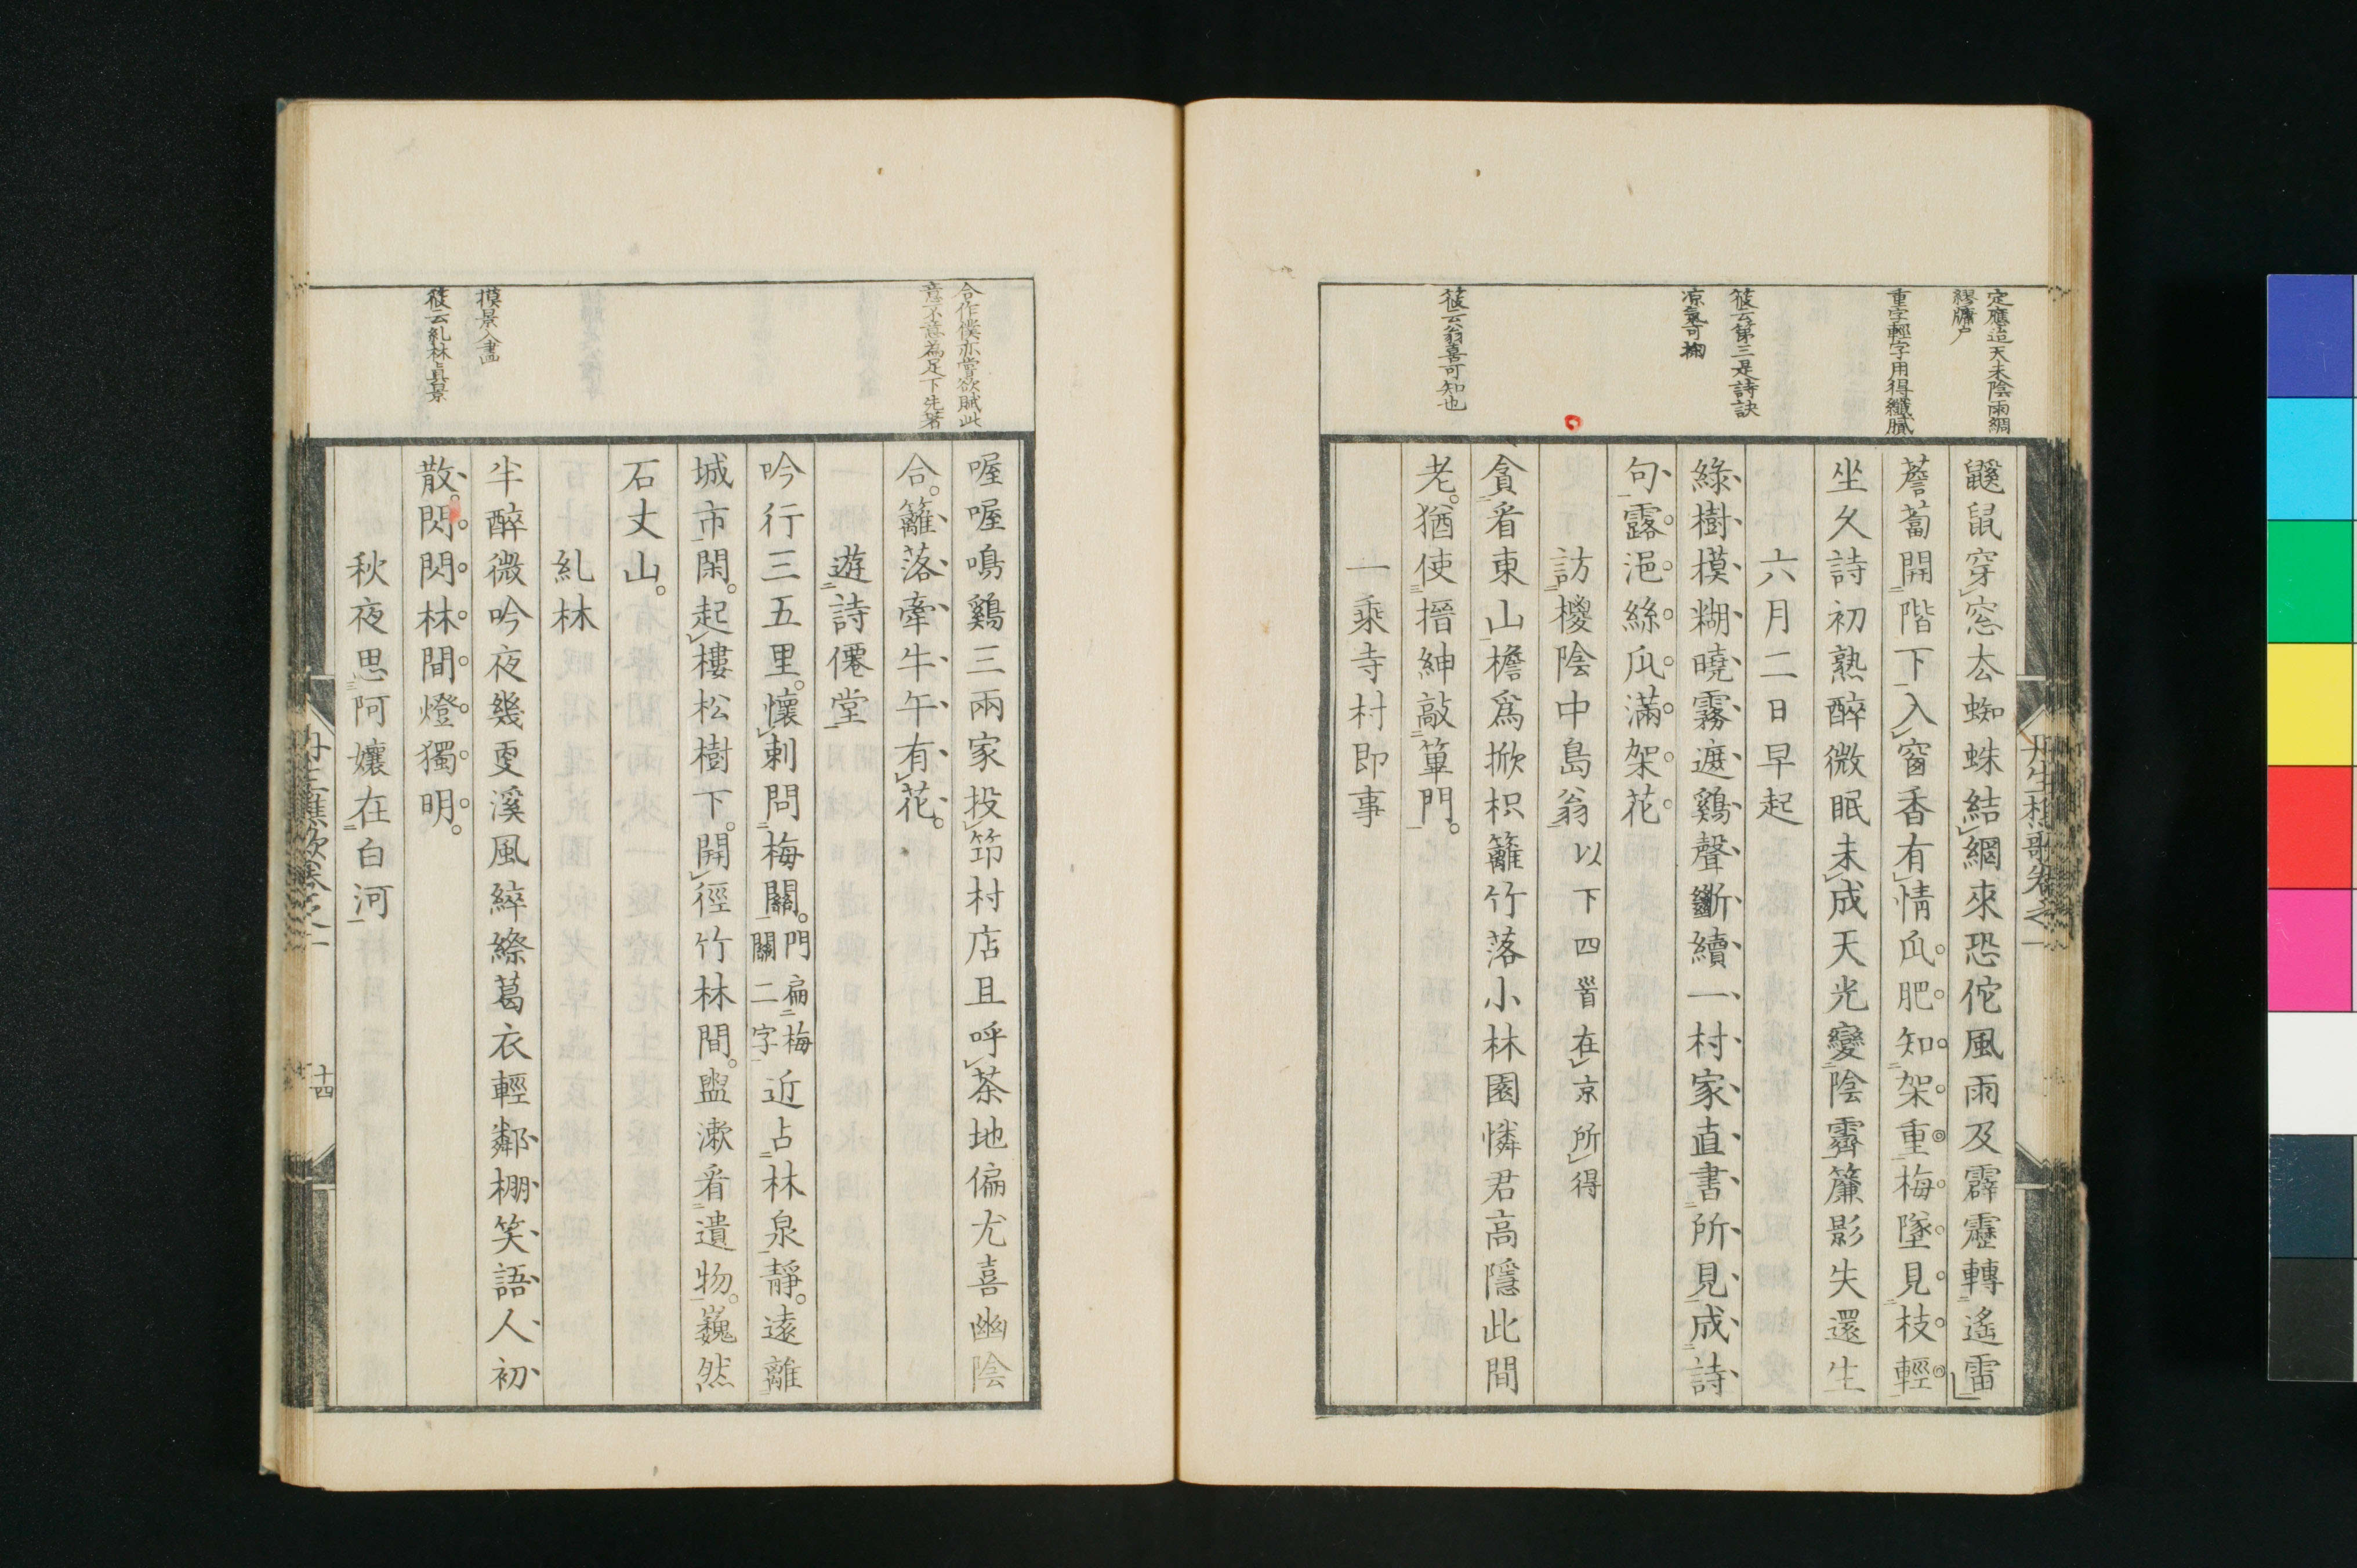 定應迨天未陰雨綢
繆牗戶
重字輕字用得纖膩
筱云第三是詩訣
凉氣可掬
筱云翁喜可知也
鼷鼠穿窓太蜘蛛結網來恐佗風雨及霹靂轉遙雷
薝蔔開階下入窗香有情瓜肥知架重梅墜見枝輕
坐久詩初熟醉微眠未成天光變陰霽簾影失還生
六月二日早起
綠樹模糊曉霧遮鷄聲斷續一村家直書所見成詩
句露浥絲瓜滿架花
訪櫻陰中島翁以下四首在京所得
貪看東山檐爲掀枳籬竹落小林園憐君高隱此間
老猶使搢紳敲篳門
一乘寺村即事
丹生樵歌卷之一
合作僕亦嘗欲賦此
意不意為足下先著
摸景入畫
筱云糺林真景
喔喔鳴鷄三兩家投笻村店且呼茶地偏尤喜幽陰
合籬落牽牛午有花
遊詩僊堂
吟行三五里懷刺問梅關門扁梅關二字近占林泉靜遠離
城市閑起樓松樹下開徑竹林間盥漱看遺物巍然
石丈山
糺林
半醉微吟夜幾更溪風綷縩葛衣輕鄰棚笑語人初
散閃閃林間燈獨明
秋夜思阿孃在白河
十四